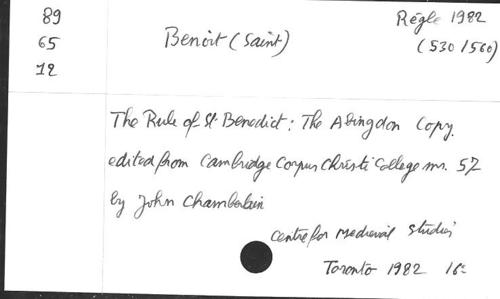 89
65
12
Benoit (Saint)
Régle 1982
(530/560)
The Rule of St. Benedict: The Abingdon Copy.
edited from Cambridge Corpus Christi College ms. 57
by John Chamberlain
Centre for Medieval Studies
Toronto 1982